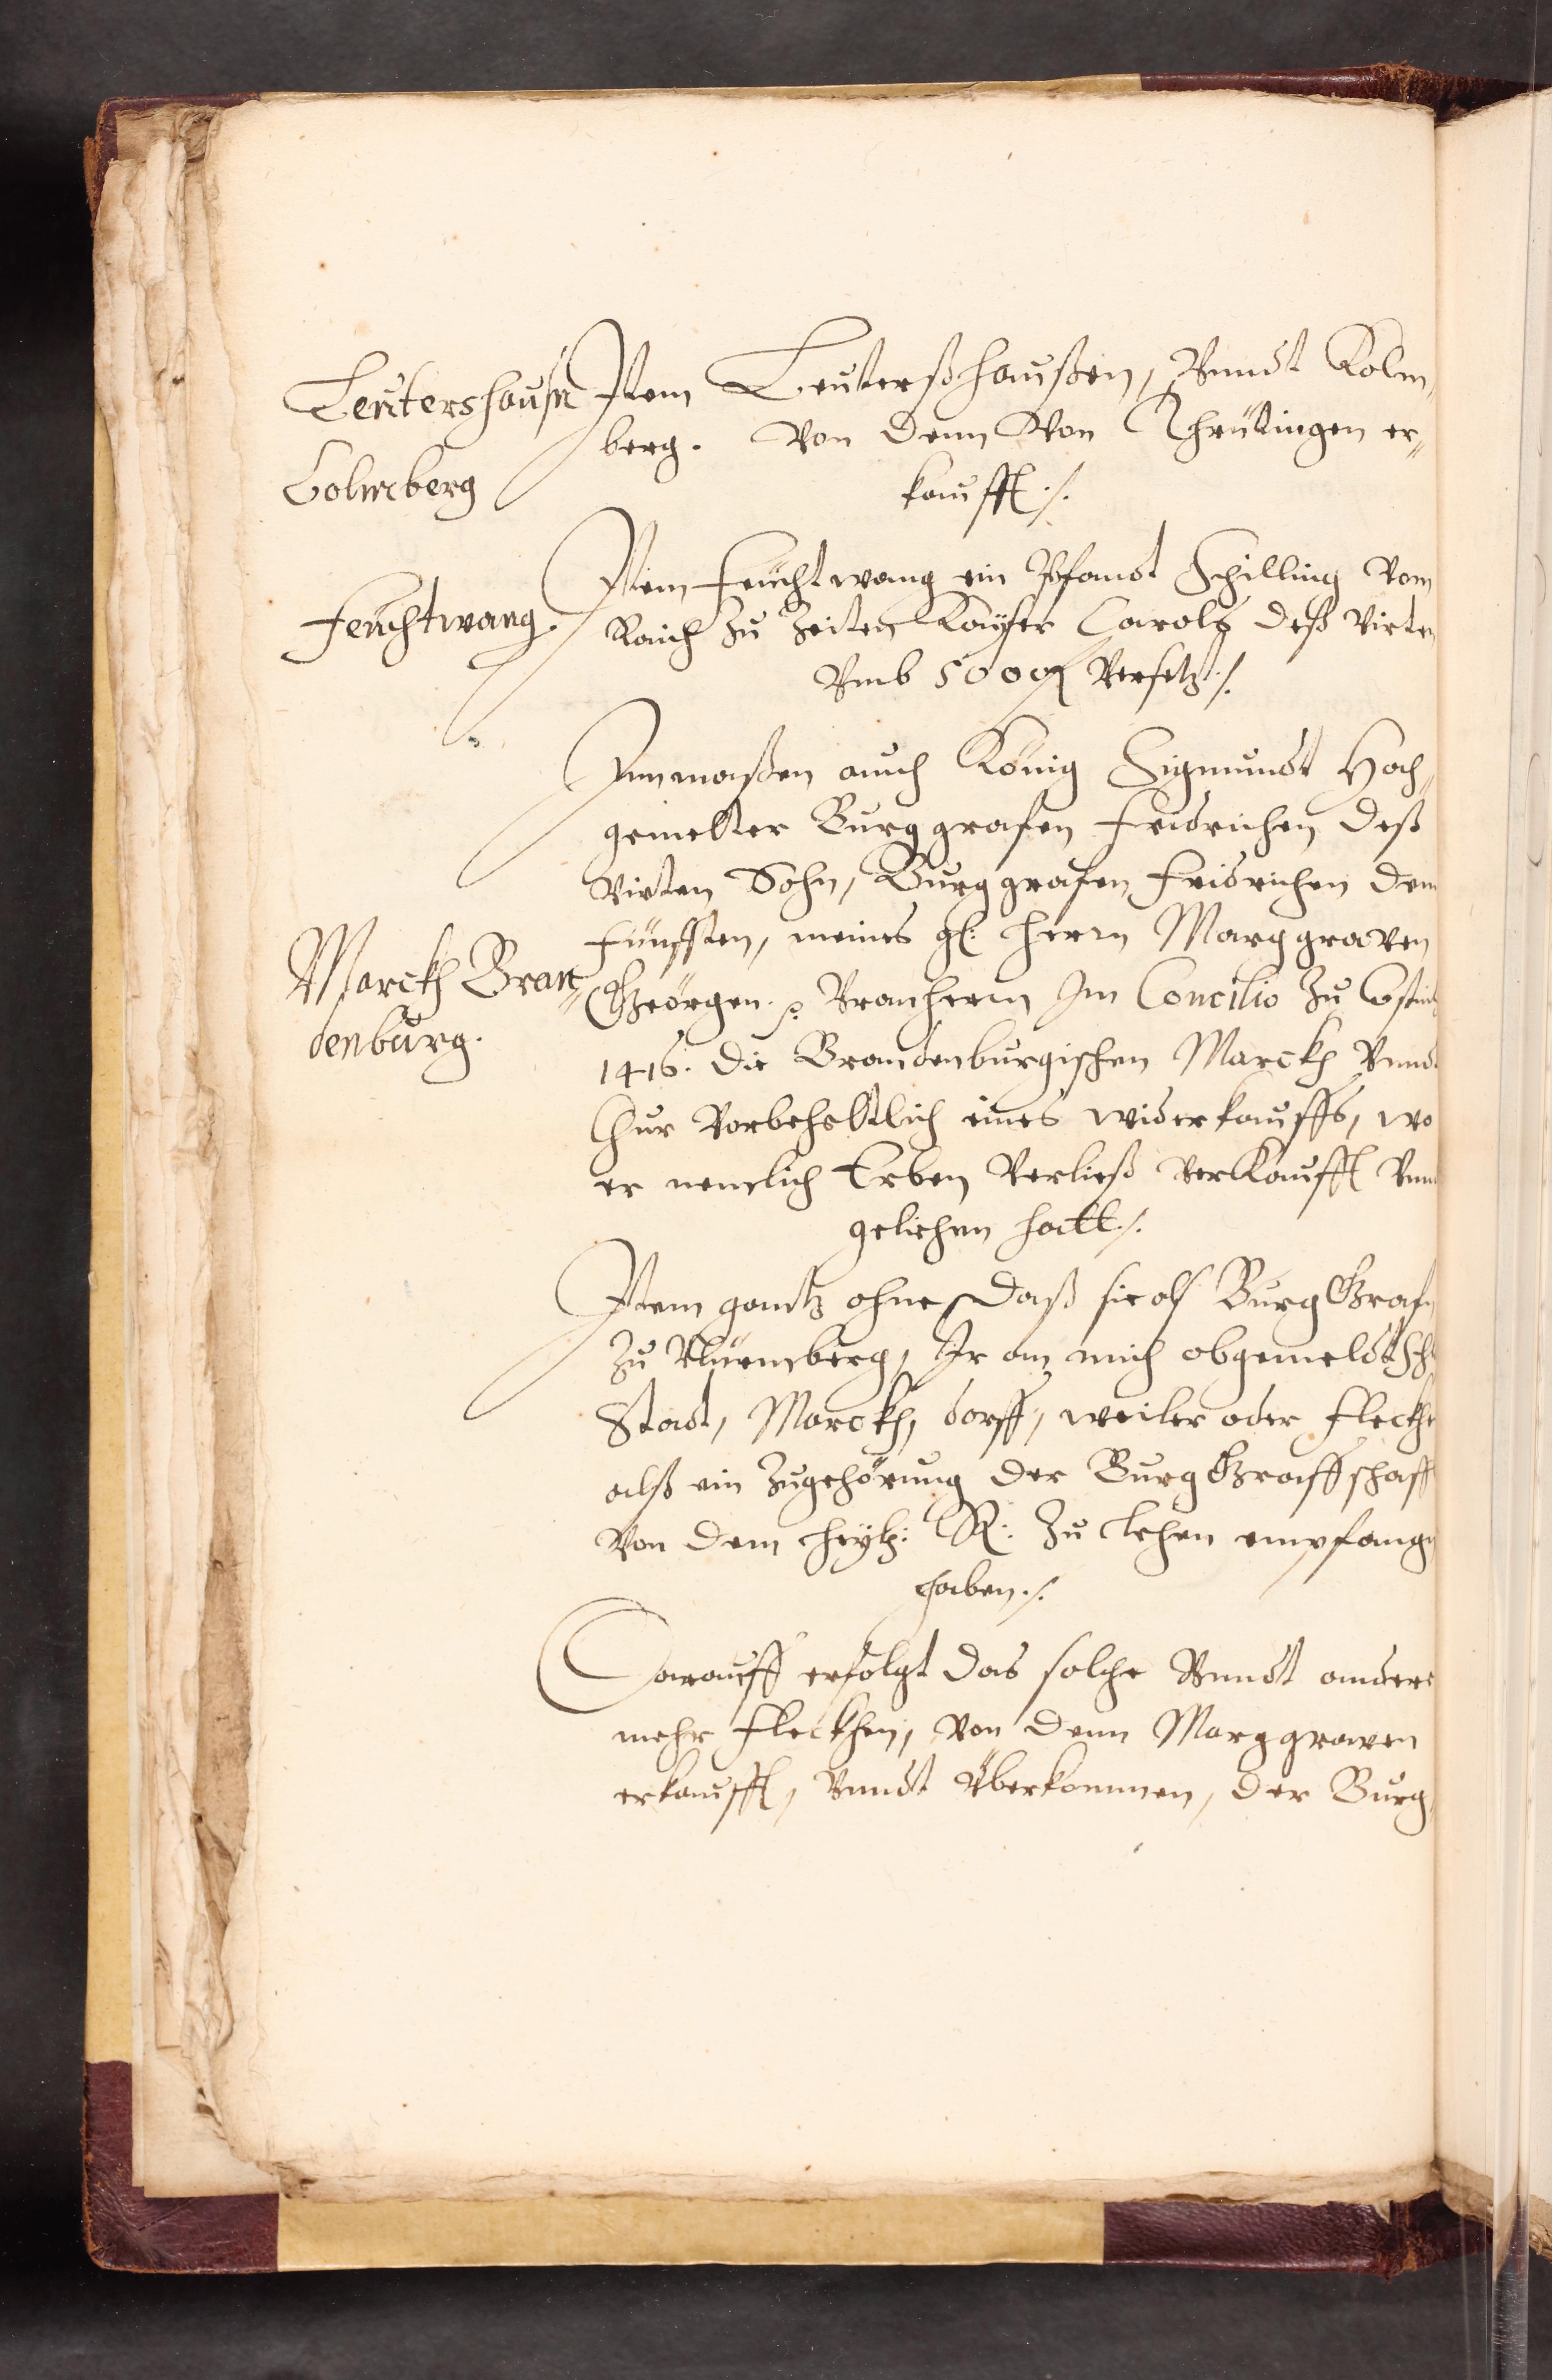 Leutershausn
Colmberg
Item Leuterßhaußen, Vnndt Kolm„
berg. Von denn Von Thrüdingen er„
kaufft ./.
Feuchtwang.
Item Feuchtwang ein Pfandt Schilling Vom
Reich zu Zeiten Kayser Carols deß Virten
Vmb 5000 fl Versetzt ./.
Innmaßen auch König Sigmundt Hoch„
gemelter Burggrafen Fridrichen deß
Virten Sohn, Burggrafen Fridrichen dem
Marckh Bran„
denburg.
Fünfften, meines gl: Herrn Marggraven
Georgen. Vranherrn Im Concilio zu
1416. die Brandenburgischen Marckh Vnnd
Chur Vorbeheltlich eines widerkauffs, wo
er nemlich Erben Verließ verkaufft Vnnd
geliehen hatt ./.
Item gantz ohne, daß sie als Burg Grafn
zu Nürmberg, Ir an mich obgemeldt
Stadt, Marckh, dorff, weiler oder Fleckhe
alß ein zugehörung der Burg Graffschafft
Von dem heyl: R: zu lehen empfange
haben ./.
Darauff erfolgt das solche Vnndt andere
mehr Fleckhen, von denn Marggraven
erkaufft, Vnndt überkommen, der Burg